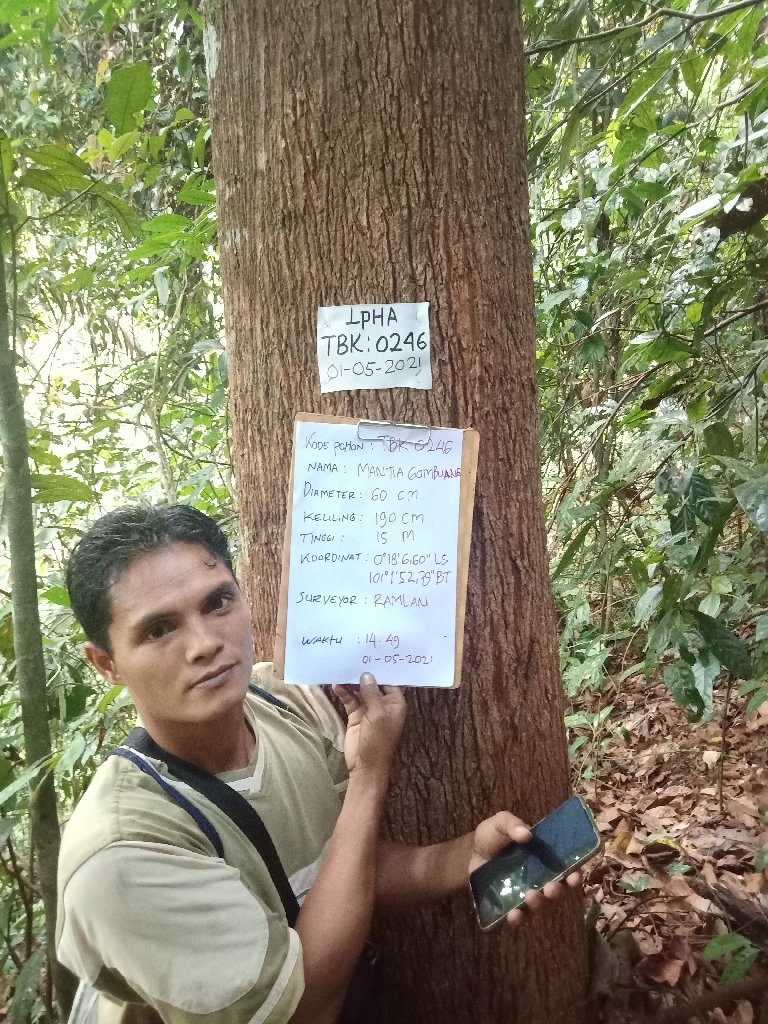 LPHA
TBK: 0246
01-05-2021
KODE POHON : TBK 0246
NAMA : MANTIA GOMBUANG
DIAMETER : 60 CM
KELILING : 190 CM
TINGGI : 15 M
KOORDINAT : 0°18'6,60" LS
101°1'52,79" BT
SURVEYOR : RAMLAN
WAKTU : 14.49
01-05-2021